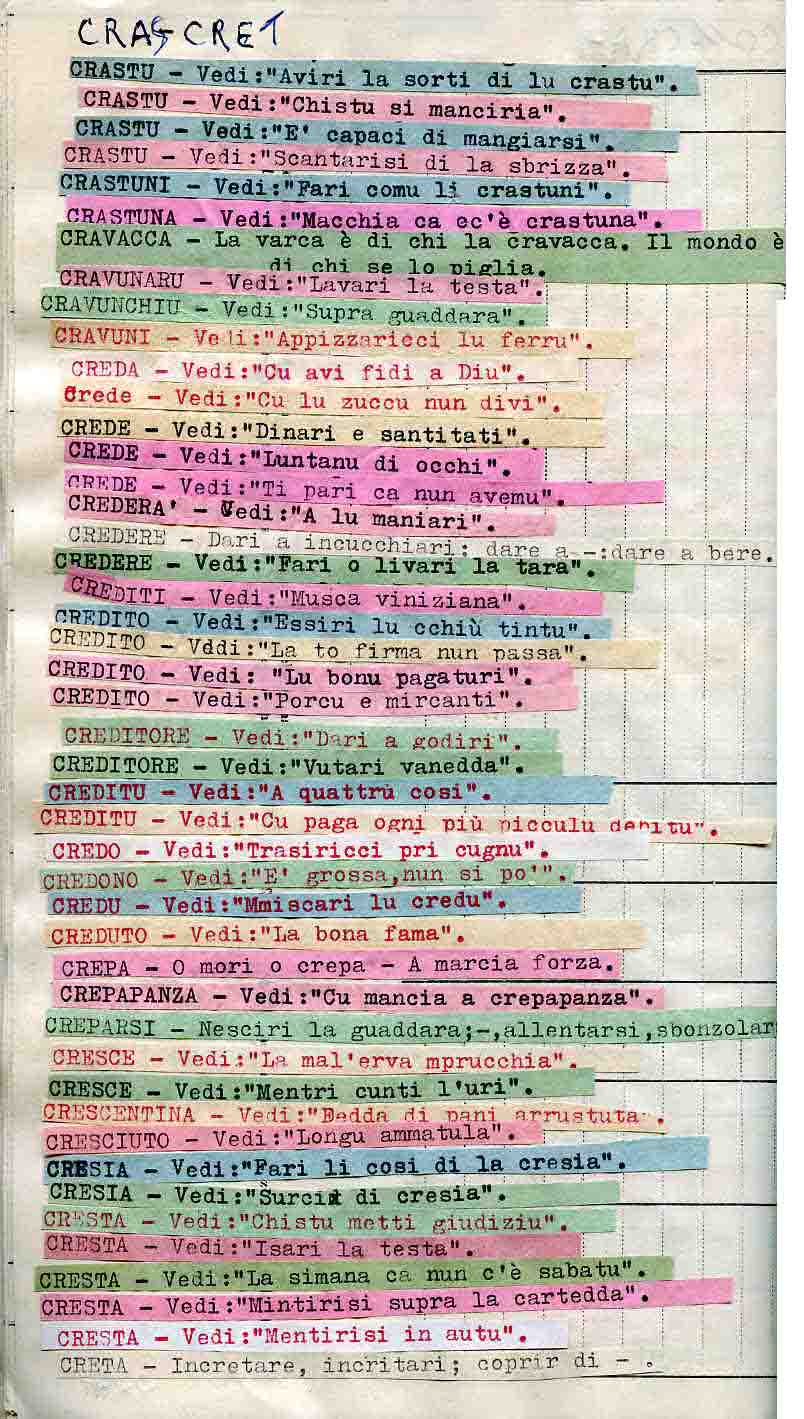 CRAS CRET
CRASTU - Vedi:"Aviri la sorti di lu crastu".
CRASTU - Vedi:"Chistu si manciria".
CRASTU - Vedi:"E' capaci di mangiarsi".
CRASTU - Vedi:"Scantarisi di la sbrizza".
CRASTUNI - Vedi:"Fari comu li crastuni".
CRASTUNA - Vedi:"Macchia ca cc'è crastuna".
CRAVACCA - La varca è di chi la cravacca. Il mondo è
di chi se lo piglia.
CRAVUNARU - Vedi:"Lavari la testa".
CRAVUNCHIU - Vedi:"Supra guaddara".
CRAVUNI - Vedi:"Appizzaricci lu ferru".
CREDA - Vedi:"Cu avi fidi a Diu".
Crede - Vedi:"Cu lu zuccu nun divi".
CREDE - Vedi:"Dinari e santitati".
CREDE - Vedi:"Luntanu di occhi".
CREDE - Vedi:"Ti pari ca nun avemu".
CREDERA' - Vedi:"A lu maniari".
CREDERE - Dari a incucchiari; dare a -:dare a bere.
CREDERE - Vedi:"Fari o livari la tara".
CREDITI - Vedi:"Musca viniziana".
CREDITO - Vedi:"Essiri lu cchiù tintu".
CREDITO - Vddi:"La to firma nun passa".
CREDITO - Vedi: "Lu bonu pagaturi".
CREDITO - Vedi:"Porcu e mircanti".
CREDITORE - Vedi:"Dari a godiri".
CREDITORE - Vedi:"Vutari vanedda".
CREDITU - Vedi:"A quattru cosi".
CREDITU - Vedi:"Cu paga ogni più picculu debitu".
CREDO - Vedi:"Trasiricci pri cugnu".
CREDONO - Vedi:"E' grossa,nun si po'".
CREDU - Vedi:"Mmiscari lu credu".
CREDUTO - Vedi:"La bona fama".
CREPA - O mori o crepa - A marcia forza.
CREPAPANZA - Vedi:"Cu mancia a crepapanza".
CREPARSI - Nesciri la guaddara;-,allentarsi,sbonzolar
CRESCE - Vedi:"La mal'erva mprucchia".
CRESCE - Vedi:"Mentri cunti l'uri".
CRESCENTINA - Vedi:"Fedda di pani arrustuta".
CRESCIUTO - Vedi:"Longu ammatula".
CRESIA - Vedi:"Fari li cosi di la cresia".
CRESIA - Vedi:"Surci di cresia".
CRESTA - Vedi:"Chistu metti giudiziu".
CRESTA - Vedi:"Isari la testa".
CRESTA - Vedi:"La simana ca nun c'è sabatu".
CRESTA - Vedi:"Mintirisi supra la cartedda".
CRESTA - Vedi:"Mentirisi in autu".
CRETA - Incretare, incritari; coprir di - .